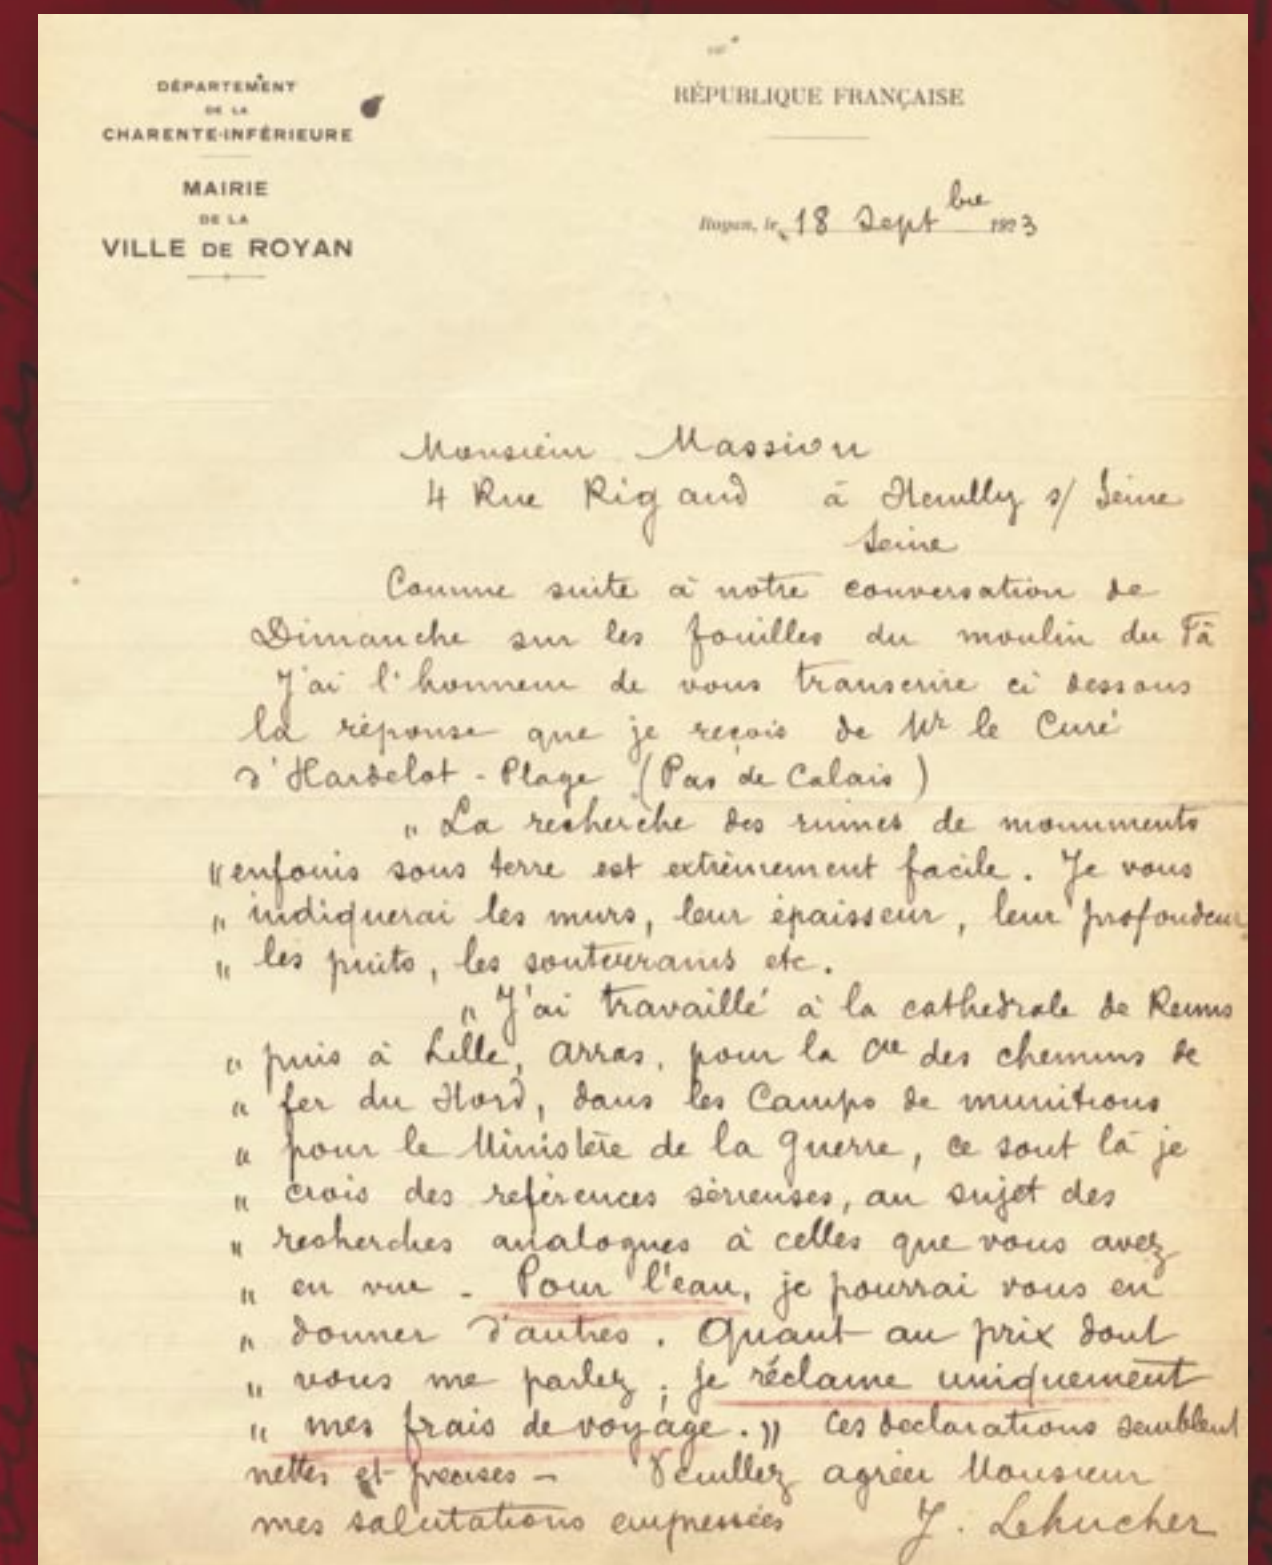 DÉPARTEMENT
DE LA
CHARENTE-INFÉRIEURE
MAIRIE
DE LA
VILLE DE ROYAN
RÉPUBLIQUE FRANÇAISE
Royan, le 18 Sept bre 1923
Monsieur Massiou
4 Rue Rigaud à Neuilly s/ Seine
Seine
Comme suite à notre conversation de
Dimanche sur les fouilles du moulin du Fâ
J'ai l'honneur de vous transcrire ci dessous
la réponse que je reçois de Mr le Curé
d'Hardelot - Plage (Pas de Calais)
" La recherche des ruines de monuments
" enfouis sous terre est extrèmement facile. Je vous
" indiquerai les murs, leur épaisseur, leur profondeur,
" les puits, les souterrains etc.
" J'ai travaillé à la cathedrale de Reims
" puis à Lille, Arras, pour la Cie des chemins de
" fer du Nord, dans les Camps de munitions
" pour le Ministère de la Guerre, ce sont là je
" crois des references sérieuses, au sujet des
" recherches analogues à celles que vous avez
" en vue - Pour l'eau, je pourrai vous en
" donner d'autres. Quant au prix dont
" vous me parlez ; je réclame uniquement
" mes frais de voyage. " Ces declarations semblent
nettes et precises - Veuillez agréer Monsieur
mes salutations empressées J. Lehucher